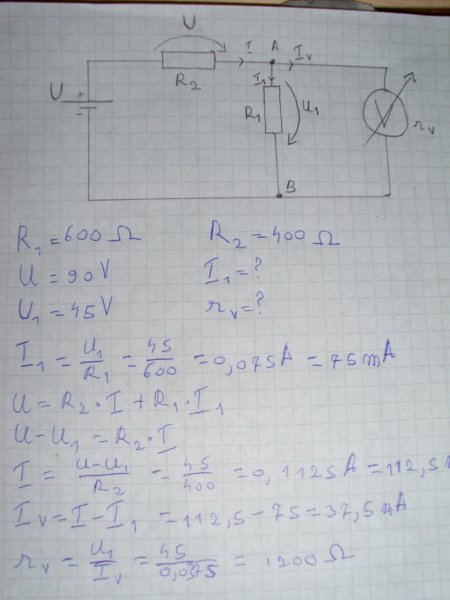 U
I A Iv
R2 I1
U + R1 U1 V rv
B
R1 = 600 Ω R2 = 400 Ω
U = 90 V I1 = ?
U1 = 45 V rv = ?
I1 = U1/R1 = 45/600 = 0,075 A = 75 mA
U = R2 · I + R1 · I1
U - U1 = R2 · I
I = U-U1/R2 = 45/400 = 0,1125 A = 112,5
Iv = I - I1 = 112,5 - 75 = 37,5 mA
rv = U1/Iv = 45/0,0375 = 1200 Ω